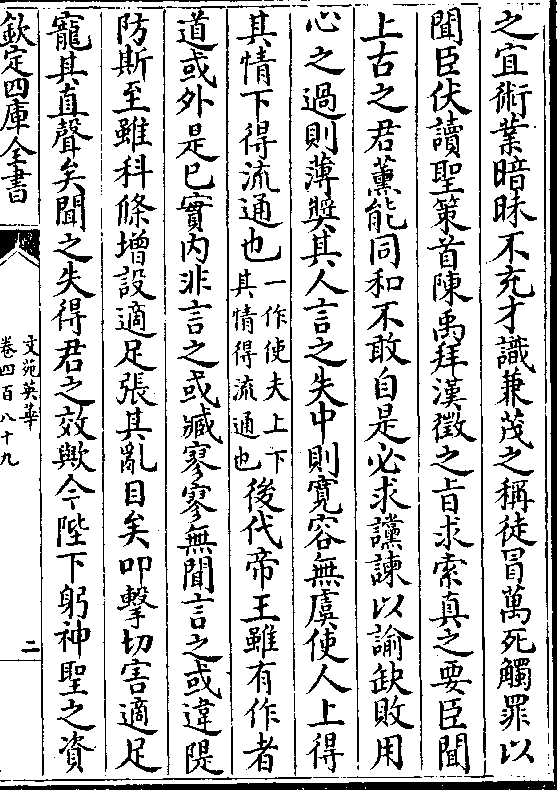 之宜術業暗昧不充才識兼茂之稱徒冒萬死觸罪以
聞臣伏讀聖策首陳禹拜漢徵之旨求索真之要臣聞
上古之君薫能同和不敢自是必求讜諫以諭缺敗用
心之過則薄奬其人言之失中則寛容無虞使人上得
其情下得流通也一作使夫上下其情得流通也後代帝王雖有作者
道或外是已實内非言之或臧寥寥無聞言之或違隄
防斯至雖科條增設適足張其亂目矣叩擊切害適足
寵其直聲矣聞之失得君之效歟今陛下躬神聖之資
欽定四庫全書
文苑英華
卷四百八十九
二